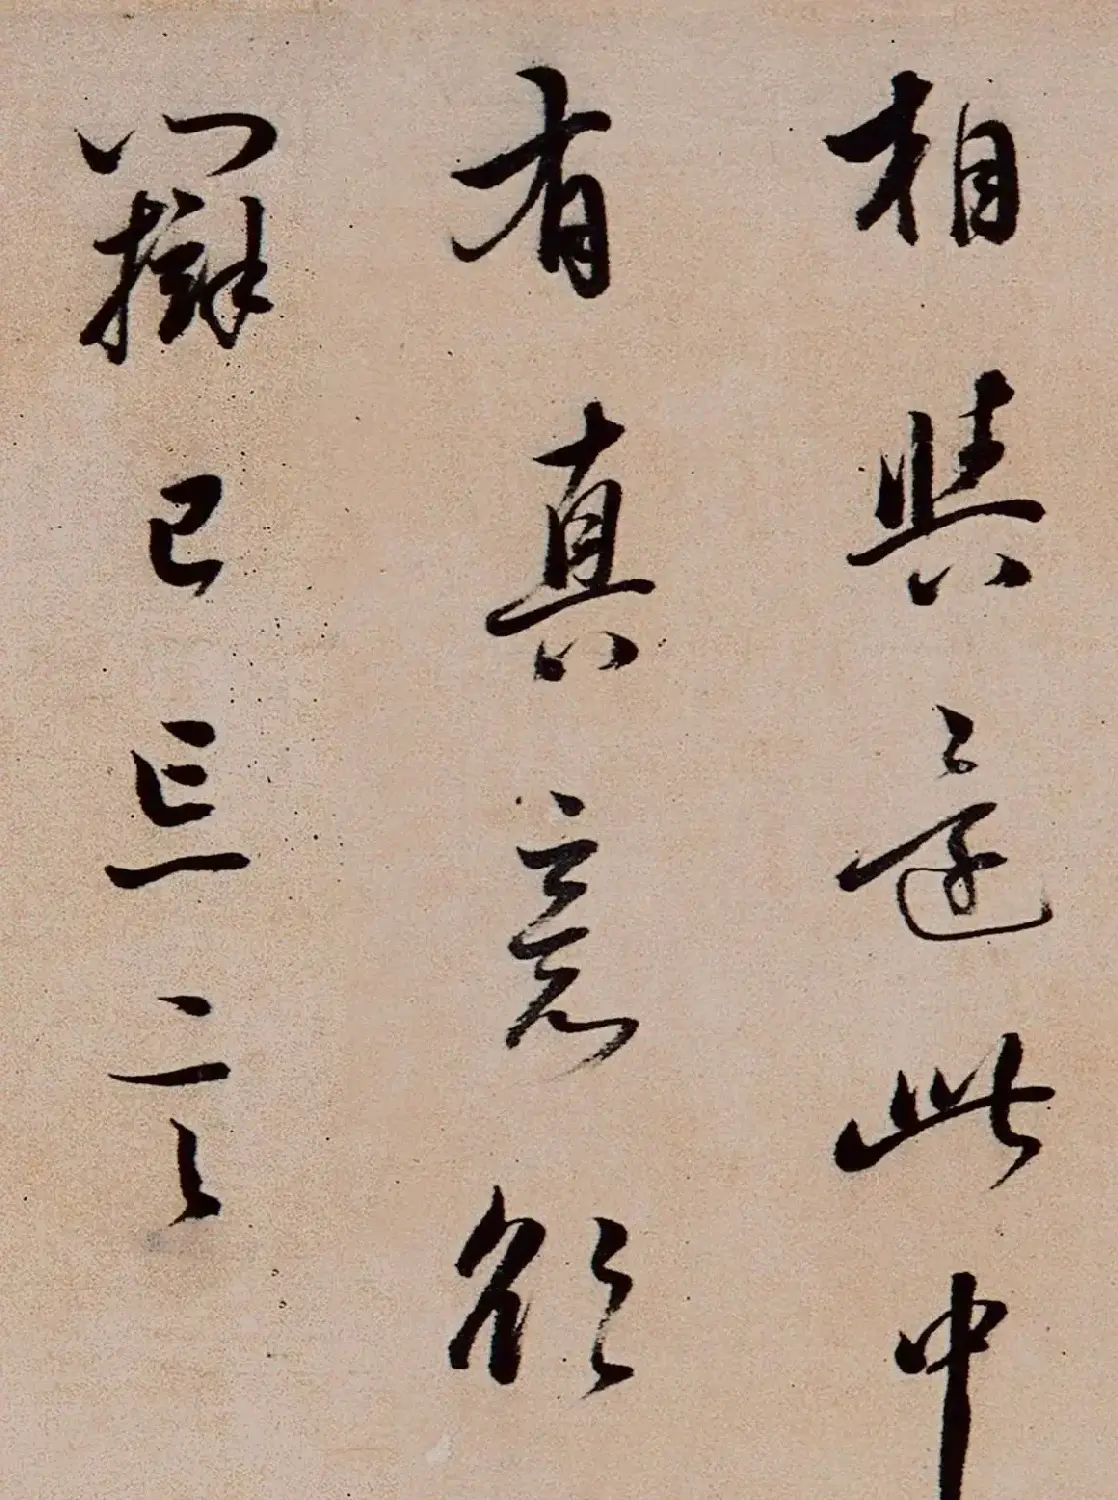 相與還此中
有真意欲
辯已忘言